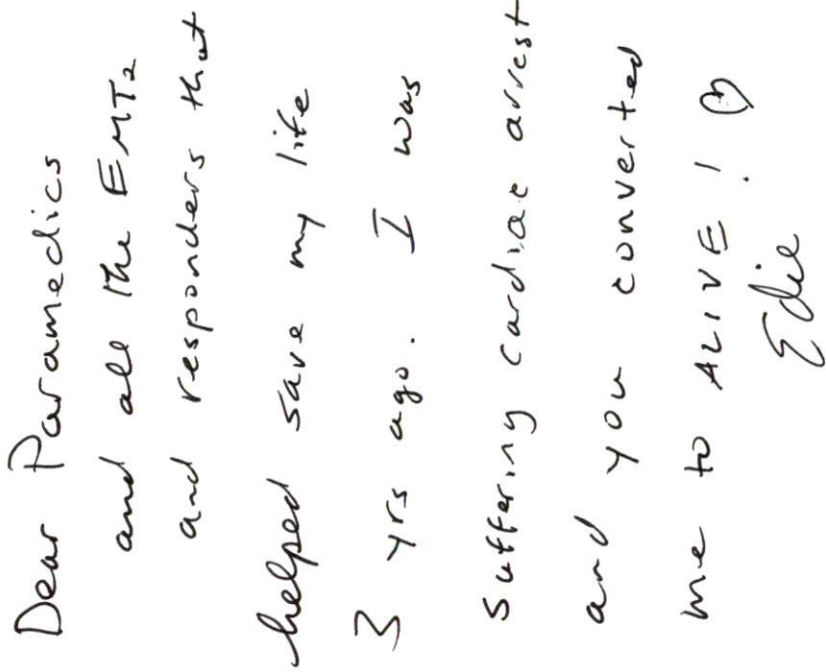 Dear Paramedics
and all the EMTs
and responders that
helped save my life
3 yrs ago. I was
suffering cardiac arrest
and you converted
me to ALIVE! ♡
Edie